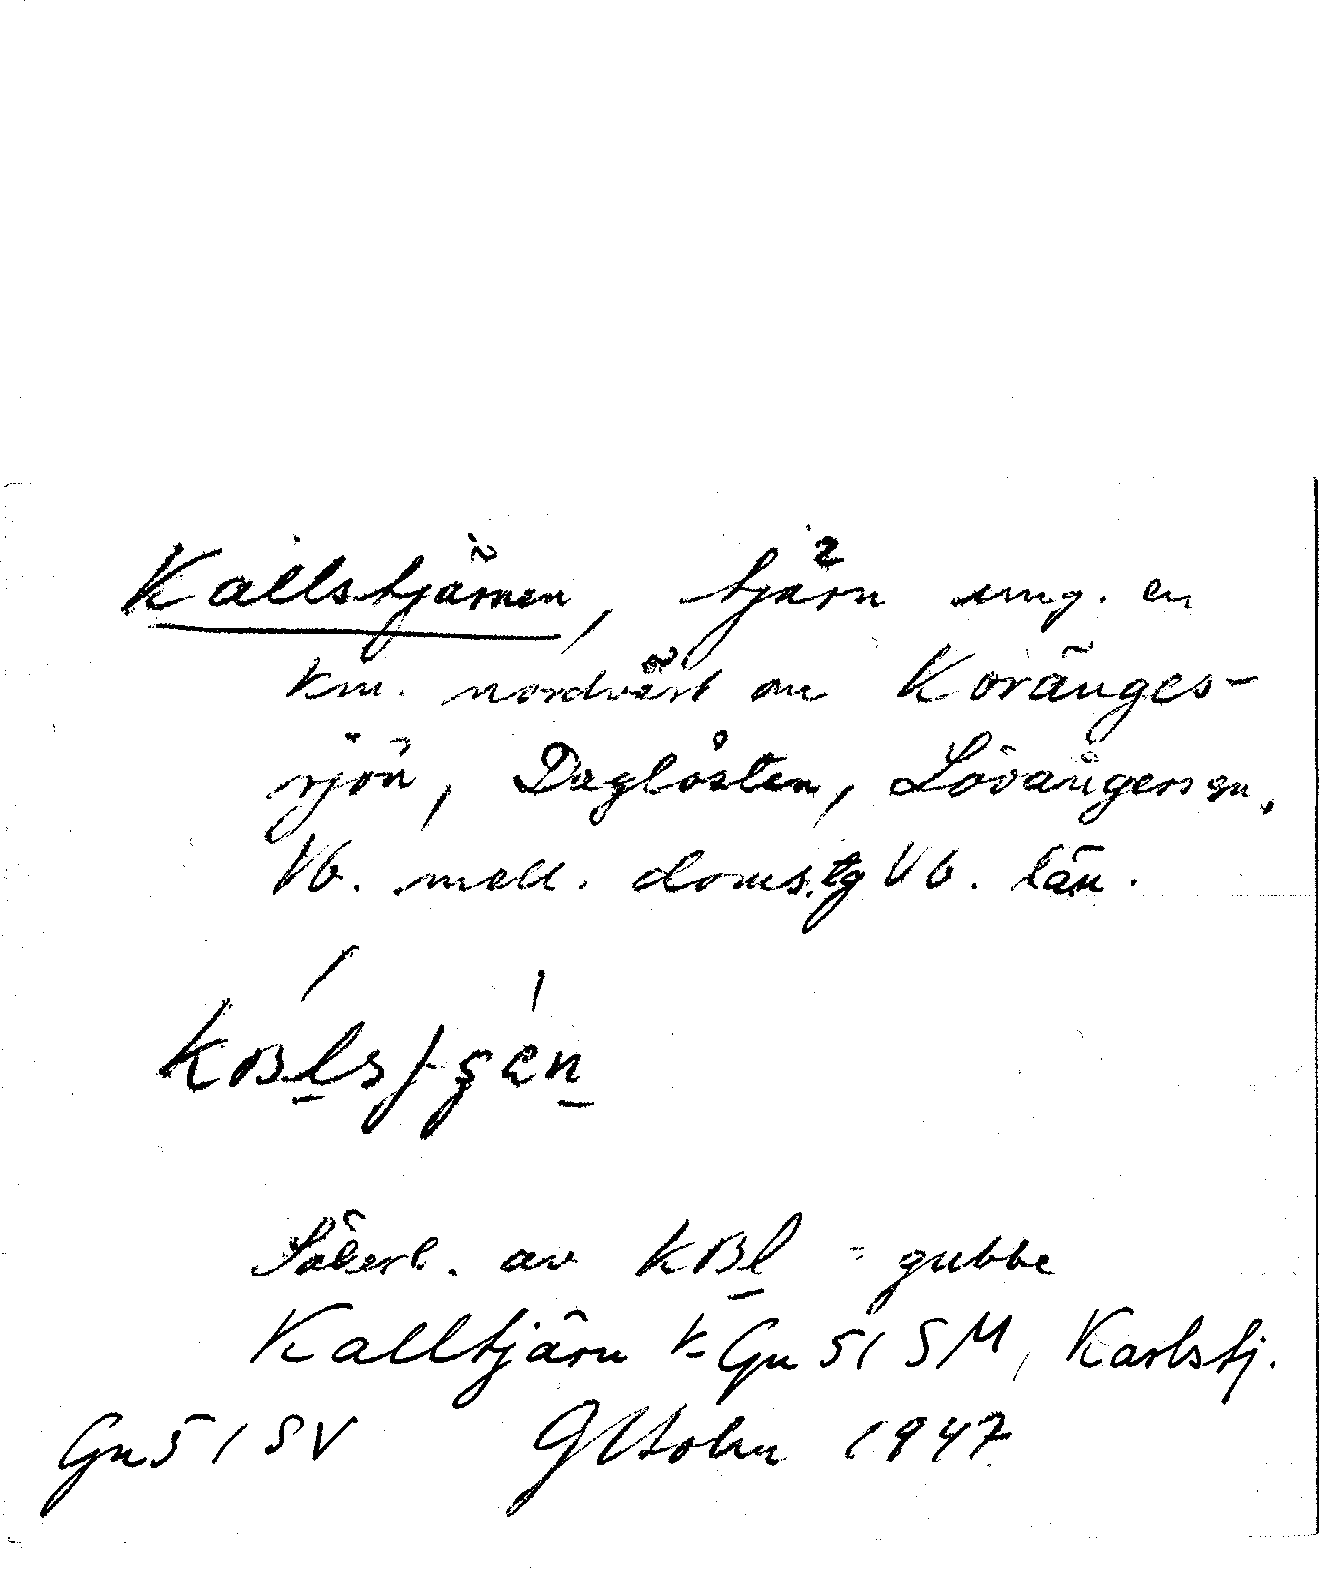 Kallstjärnen, tjärn ung. en
km. nordväst om Koränges-
sjön, Daglösten, Lövångers sn,
Vb. mell. doms.tg Vb. län.
Säkerl. av = gubbe
Kalltjärn k Gn 51 SM, Karlstj.
Gn 51 SV Holm 1947